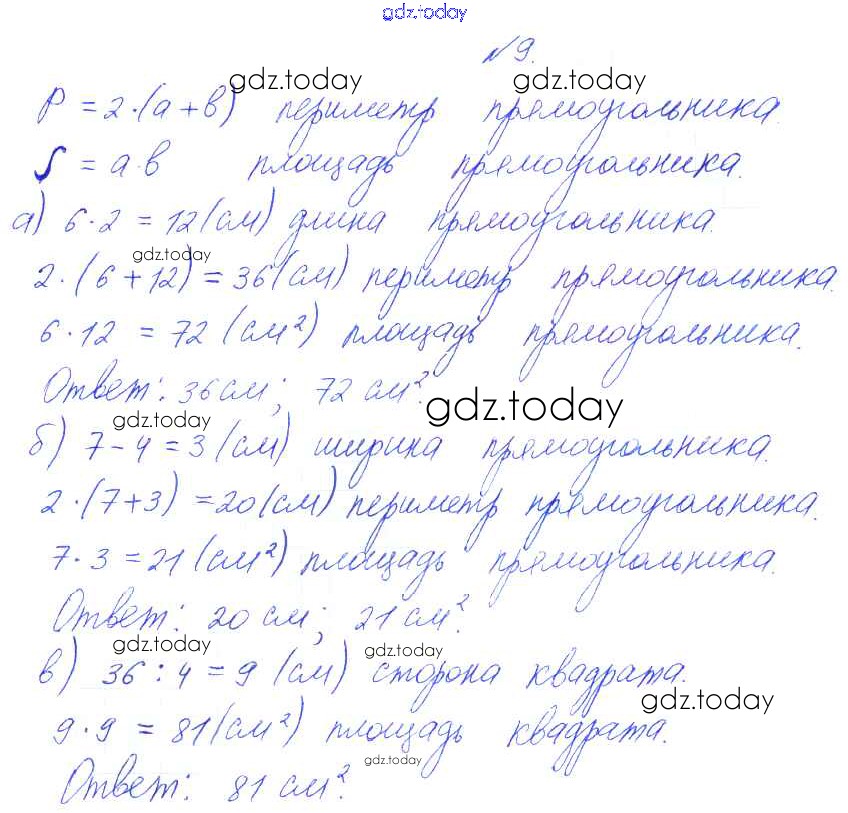 gdz.today
№9.
gdz.today
P = 2·(a+b) периметр прямоугольника.
S = a·b площадь прямоугольника.
а) 6·2 = 12 (см) длина прямоугольника.
gdz.today
2·(6+12) = 36 (см) периметр прямоугольника.
6·12 = 72 (см²) площадь прямоугольника.
Ответ: 36 см; 72 см².
gdz.today
gdz.today
б) 7-4 = 3 (см) ширина прямоугольника.
2·(7+3) = 20 (см) периметр прямоугольника.
7·3 = 21 (см²) площадь прямоугольника.
Ответ: 20 см; 21 см².
gdz.today
gdz.today
в) 36:4 = 9 (см) сторона квадрата.
gdz.today
9·9 = 81 (см²) площадь квадрата.
gdz.today
Ответ: 81 см².